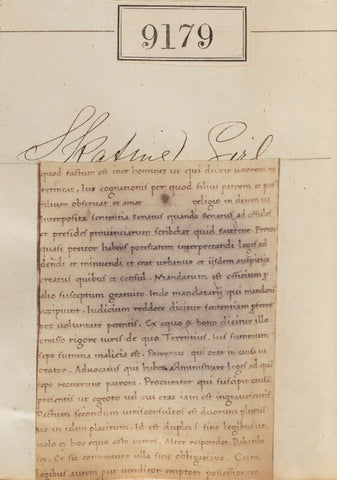 9179
Skating Girl
quod factum est inter homines ut qui duxit uxorem in
retineat. Ius cognationis per quod filius patrem et pater
filium observat et amat religio in deum ut
interposita sententia senatus quando senatus ad consules
et presides provinciarum scribebat quid facerent. Pretor
quasi preitor habens potestatem interpretandi leges ad
dendi et minuendi et erat urbanus et iisdem auspiciis
creatus quibus et consul. Mandatum est officium
alio susceptum gratuito. Inde mandatarii qui mandata
accipiunt. Iudicium reddere dicitur sententiam
pro voluntate petentis. Ex equo & bono dicitur illo
omisso rigore iuris de quo Terentius. Ius summum
sepe summa malicia est. Patronus qui orat in causa ut
orator. Advocatus qui habet administrare leges ad que
sepe recurrunt patroni. Procurator qui suscipit causam
presentis ut egroto vel cui etas iam est ingravescentis
Pactum secundum iurisconsultos est duorum plurium
in idem placitum. Id est duplex sine legibus ut
volo ex hoc equo octo aureos. Alter respondet. Dabo
Et sic conveniunt illa sine obligatione. Cum
legibus autem put venditor emptori possessionem